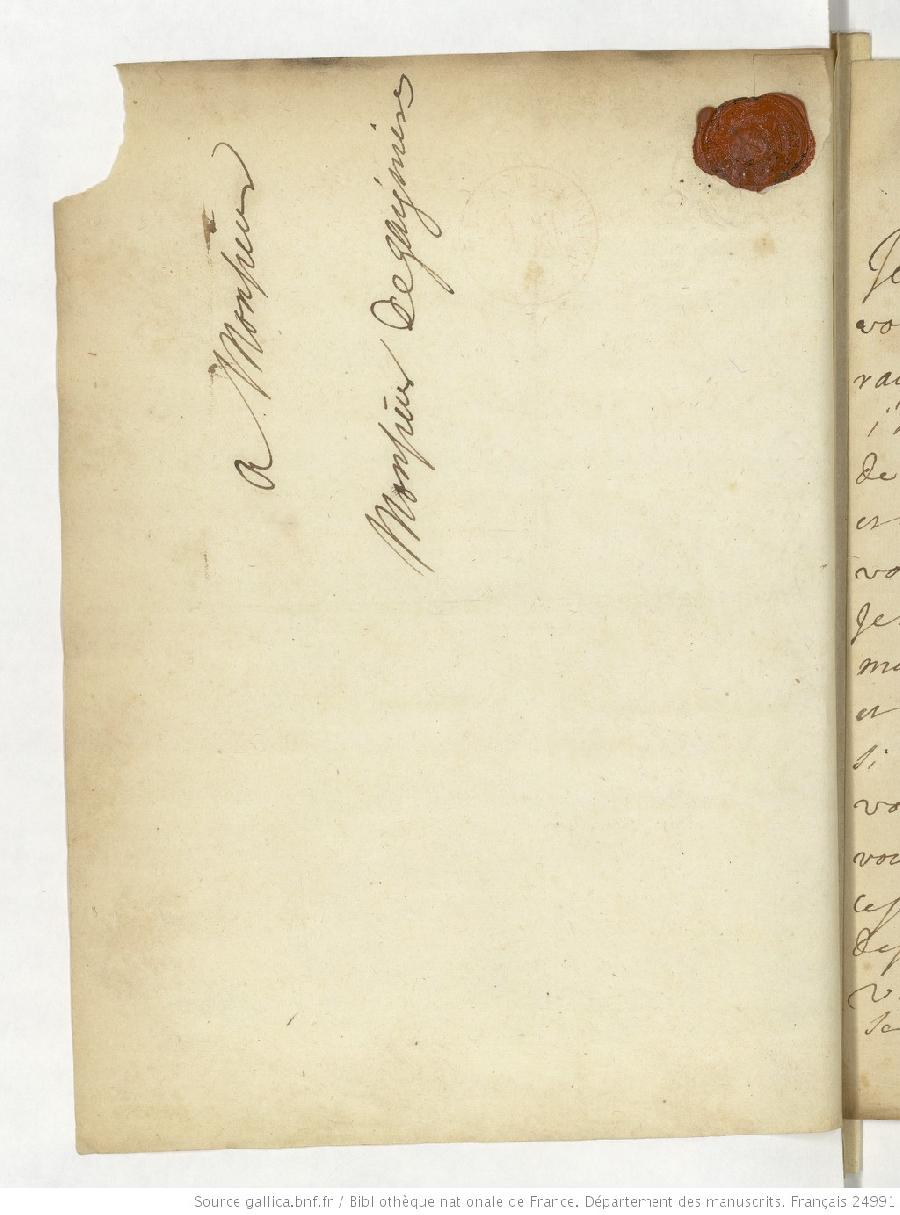 a Monsieur
Monsieur Degaignieres
Je
vo
rai
de
et
vo
Je
ma
et
si
vo
vou
ces
Des
Source gallica.bnf.fr / Bibliothèque nationale de France. Département des manuscrits. Français 24991